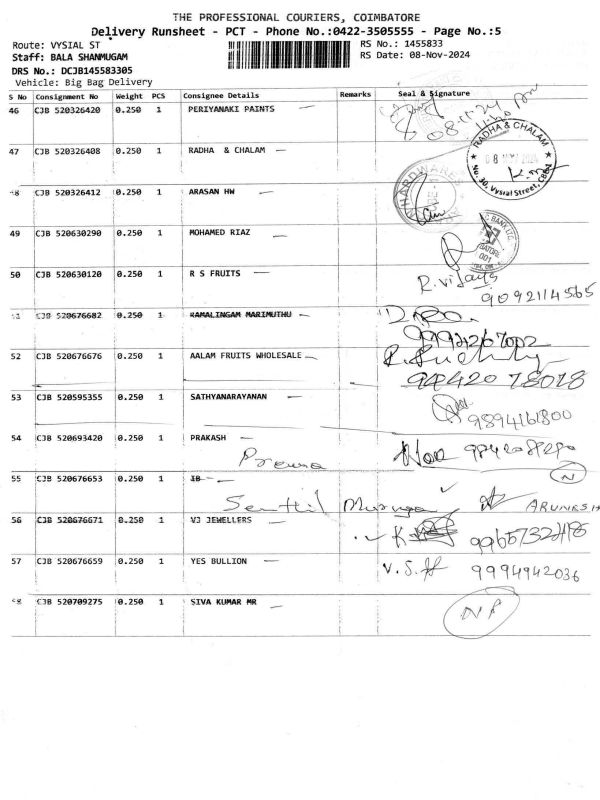 THE PROFESSIONAL COURIERS, COIMBATORE
Delivery Runsheet - PCT - Phone No.:0422-3505555 - Page No.:5
Route: VYSIAL ST RS No.: 1455833
Staff: BALA SHANMUGAM RS Date: 08-Nov-2024
DRS No.: DCJB145583305
Vehicle: Big Bag Delivery
S No Consignment No Weight PCS Consignee Details Remarks Seal & Signature
46 CJB 520326420 0.250 1 PERIYANAKI PAINTS
08-11-24
47 CJB 520326408 0.250 1 RADHA & CHALAM
RADHA & CHALAM
08 NOV 2024
No. 30, Vysial Street, CBE-1
48 CJB 520326412 0.250 1 ARASAN HW
HARDWARES
49 CJB 520630290 0.250 1 MOHAMED RIAZ
BANK LTD.
001
50 CJB 520630120 0.250 1 R S FRUITS R. Vijaya
9092114565
51 CJB 520676682 0.250 1 RAMALINGAM MARIMUTHU
52 CJB 520676676 0.250 1 AALAM FRUITS WHOLESALE
94420 78018
53 CJB 520595355 0.250 1 SATHYANARAYANAN
9894161800
54 CJB 520693420 0.250 1 PRAKASH
N
55 CJB 520676653 0.250 1 IB
Senthil Muruga ARUNESH
56 CJB 520676671 0.250 1 VJ JEWELLERS
9965732418
57 CJB 520676659 0.250 1 YES BULLION V.S. 9994942036
58 CJB 520709275 0.250 1 SIVA KUMAR MR